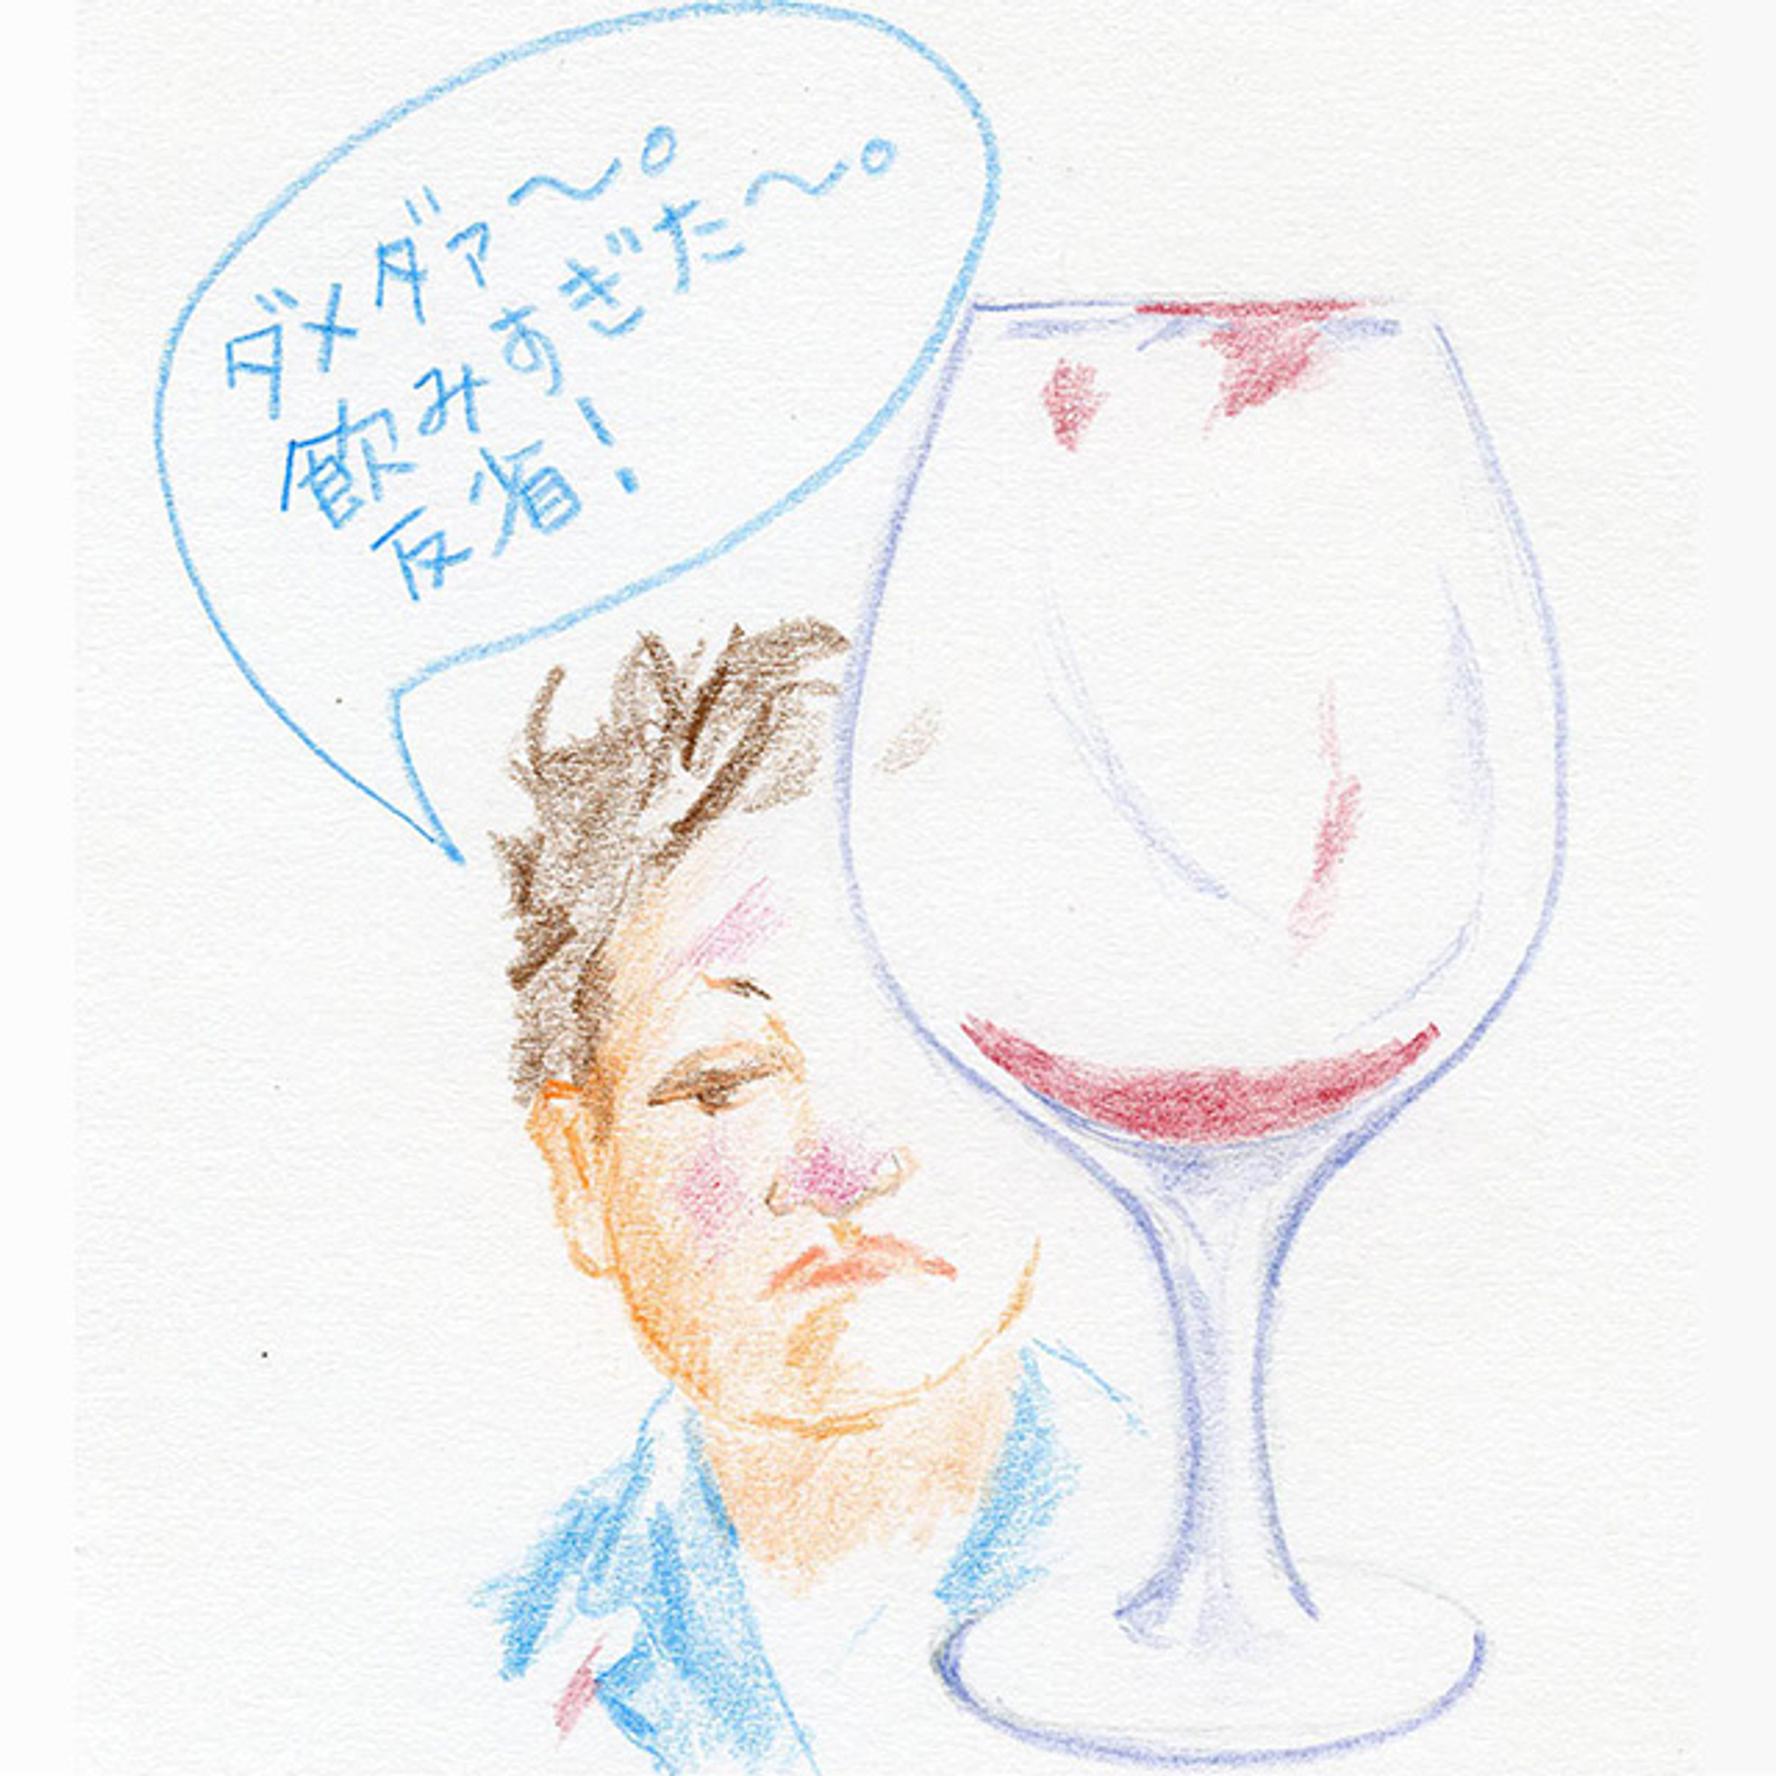 ダメダァ〜。
飲みすぎた〜。
反省！